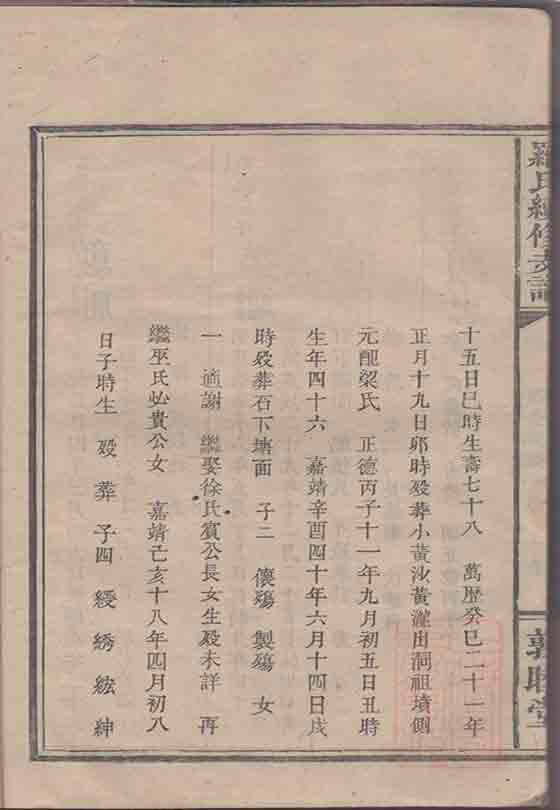 羅氏續修支譜
敦睦堂
十五日巳時生壽七十八 萬歷癸巳二十一年
正月十九日卯時殁葬小黃沙黃瀧出洞祖墳側
元配梁氏 正德丙子十一年九月初五日丑時
生年四十六 嘉靖辛酉四十年六月十四日戌
時殁葬石下塘面 子二 懷殤 製殤 女
一 適謝 繼娶徐氏賓公長女生殁未詳 再
繼巫氏必貴公女 嘉靖己亥十八年四月初八
日子時生 殁 葬 子四 綬 綉 綋 紳